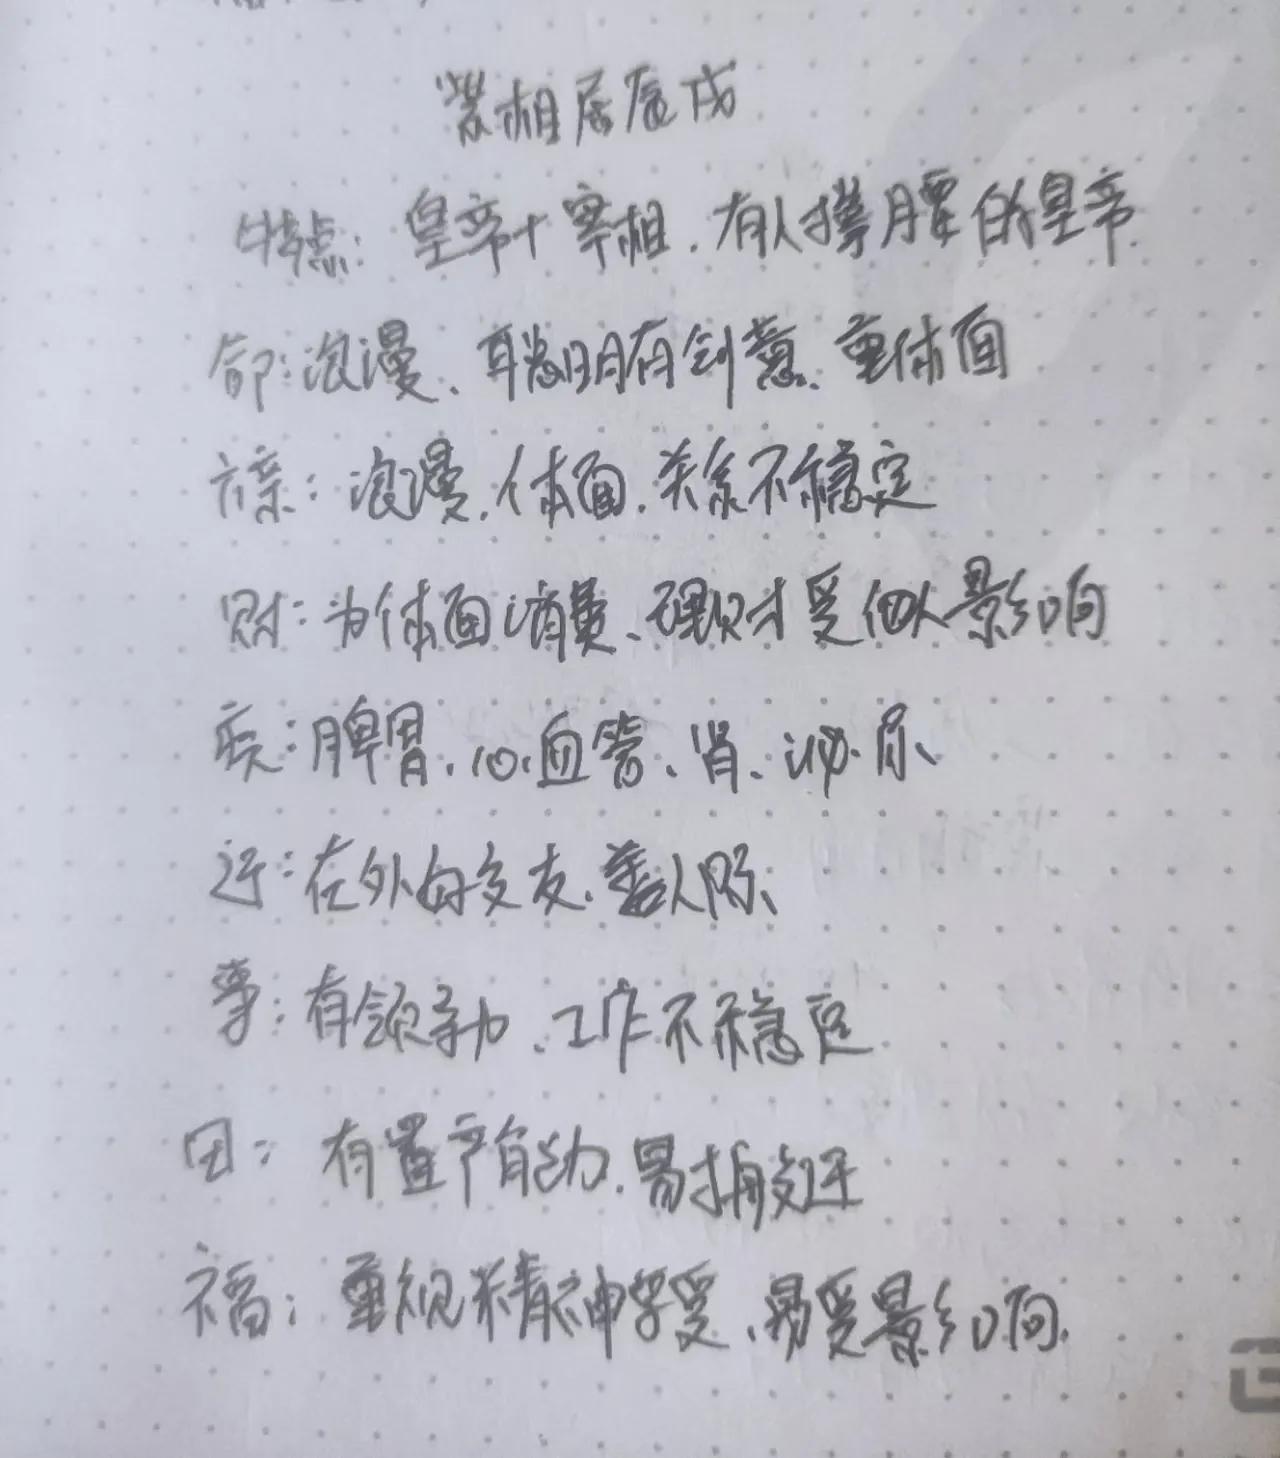 紫相居辰戌
特点：皇帝+宰相，有人撑腰的皇帝
命：浪漫、聪明有创意、重体面
夫妻：浪漫，体面，关系不稳定
财：为体面消费、理财受他人影响
疾：脾胃、心血管、肾、泌尿、
迁：在外好交友，善人际、
事：有领导力、工作不稳定
田：有置产能力，易搬迁
福：重视精神享受，易受影响